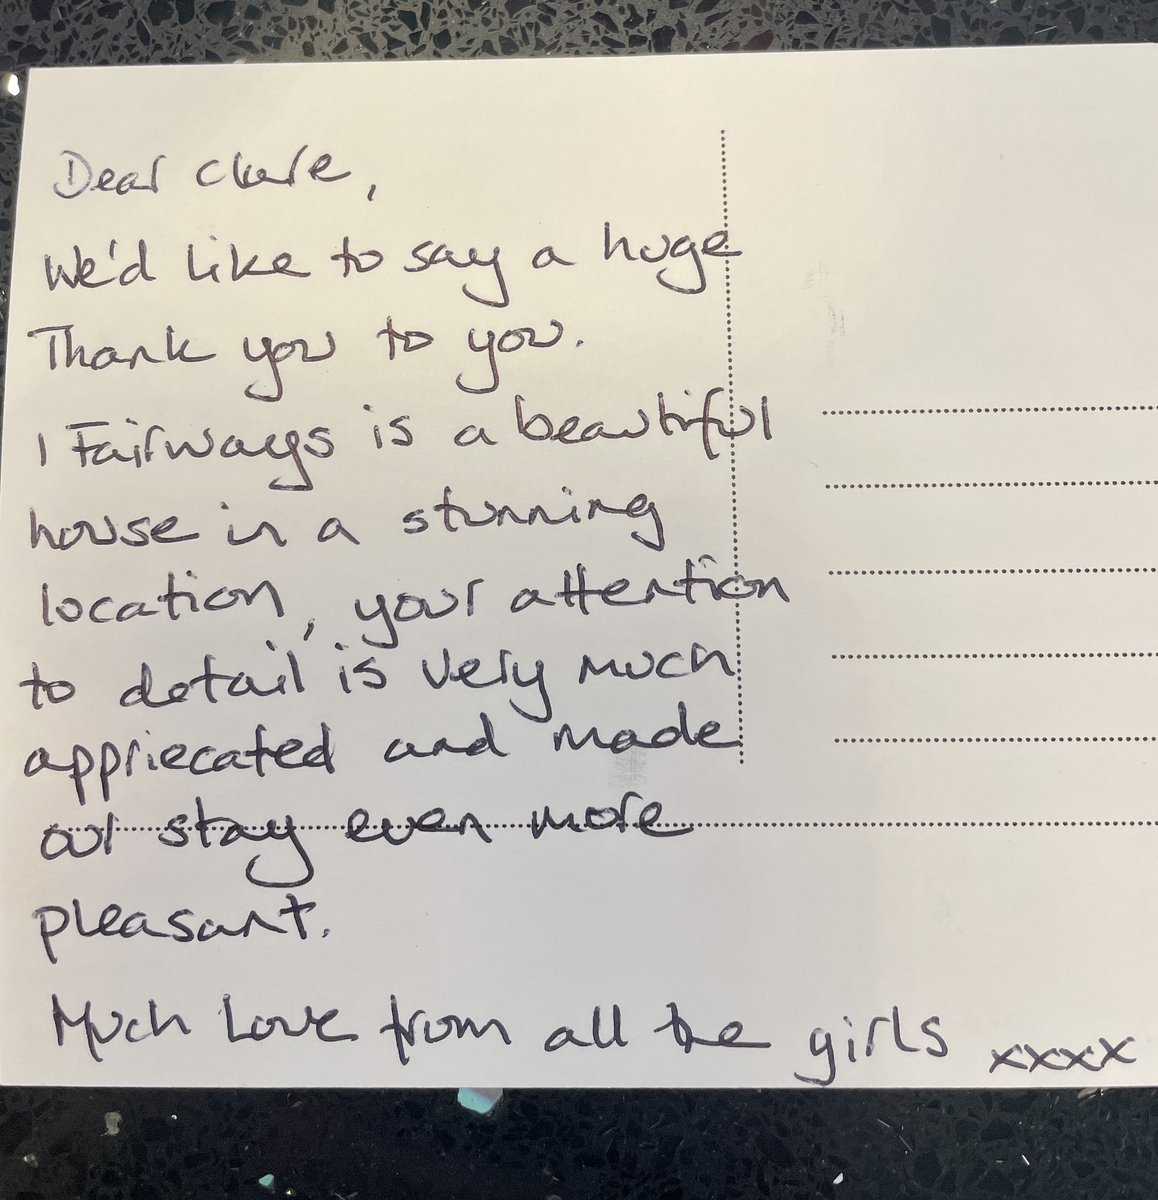 Dear Clare,
We'd like to say a huge
Thank you to you.
1 Fairways is a beautiful
house in a stunning
location, your attention
to detail is very much
appriecated and made
our stay even more
pleasant.
Much Love from all the girls xxxx